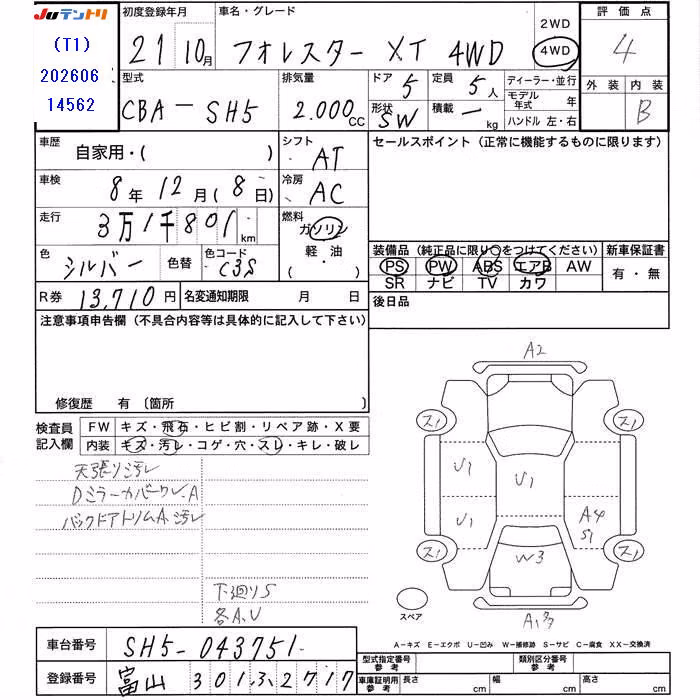 JUテントリ
(T1)
202606
14562
初度登録年月
21年10月
車名・グレード
フォレスター XT 4WD
2WD
4WD
評価点
4
外装 内装
B
型式
CBA-SH5
排気量
2.000cc
ドア 5
形状 SW
定員 5人
積載 - kg
ディーラー・並行
モデル年式 年
ハンドル 左・右
車歴 自家用・( )
シフト AT
セールスポイント（正常に機能するものに限ります）
車検 8年12月(8日)
冷房 AC
走行 3万1千801km
燃料 ガソリン
軽・油
・
色 シルバー 色替 色コード C3S
装備品（純正品に限り○をつけてください）
PS PW ABS エアB AW
SR ナビ TV カワ
新車保証書
有・無
R券 13,710円 名変通知期限 月 日
後日品
注意事項申告欄（不具合内容等は具体的に記入して下さい）
修復歴 有〔箇所
検査員記入欄
FW キズ・飛石・ヒビ割・リペア跡・X要
内装 キズ・汚レ・コゲ・穴・スレ・キレ・破レ
天張り汚レ
DミラーカバークレA
バックドアトリムA.汚レ
下廻りS
各A,U
A2
ス1 ス1
U1 U1
U1 A4
S1
ス1 W3 ス1
スペア
A1多
A-キズ E-エクボ U-凹み W-補修跡 S-サビ C-腐食 XX-交換済
車台番号 SH5-043751
登録番号 富山 301 3 2717
型式指定番号 参考
類別区分番号 参考
車庫証明用 参考 長さ cm 幅 cm 高さ cm